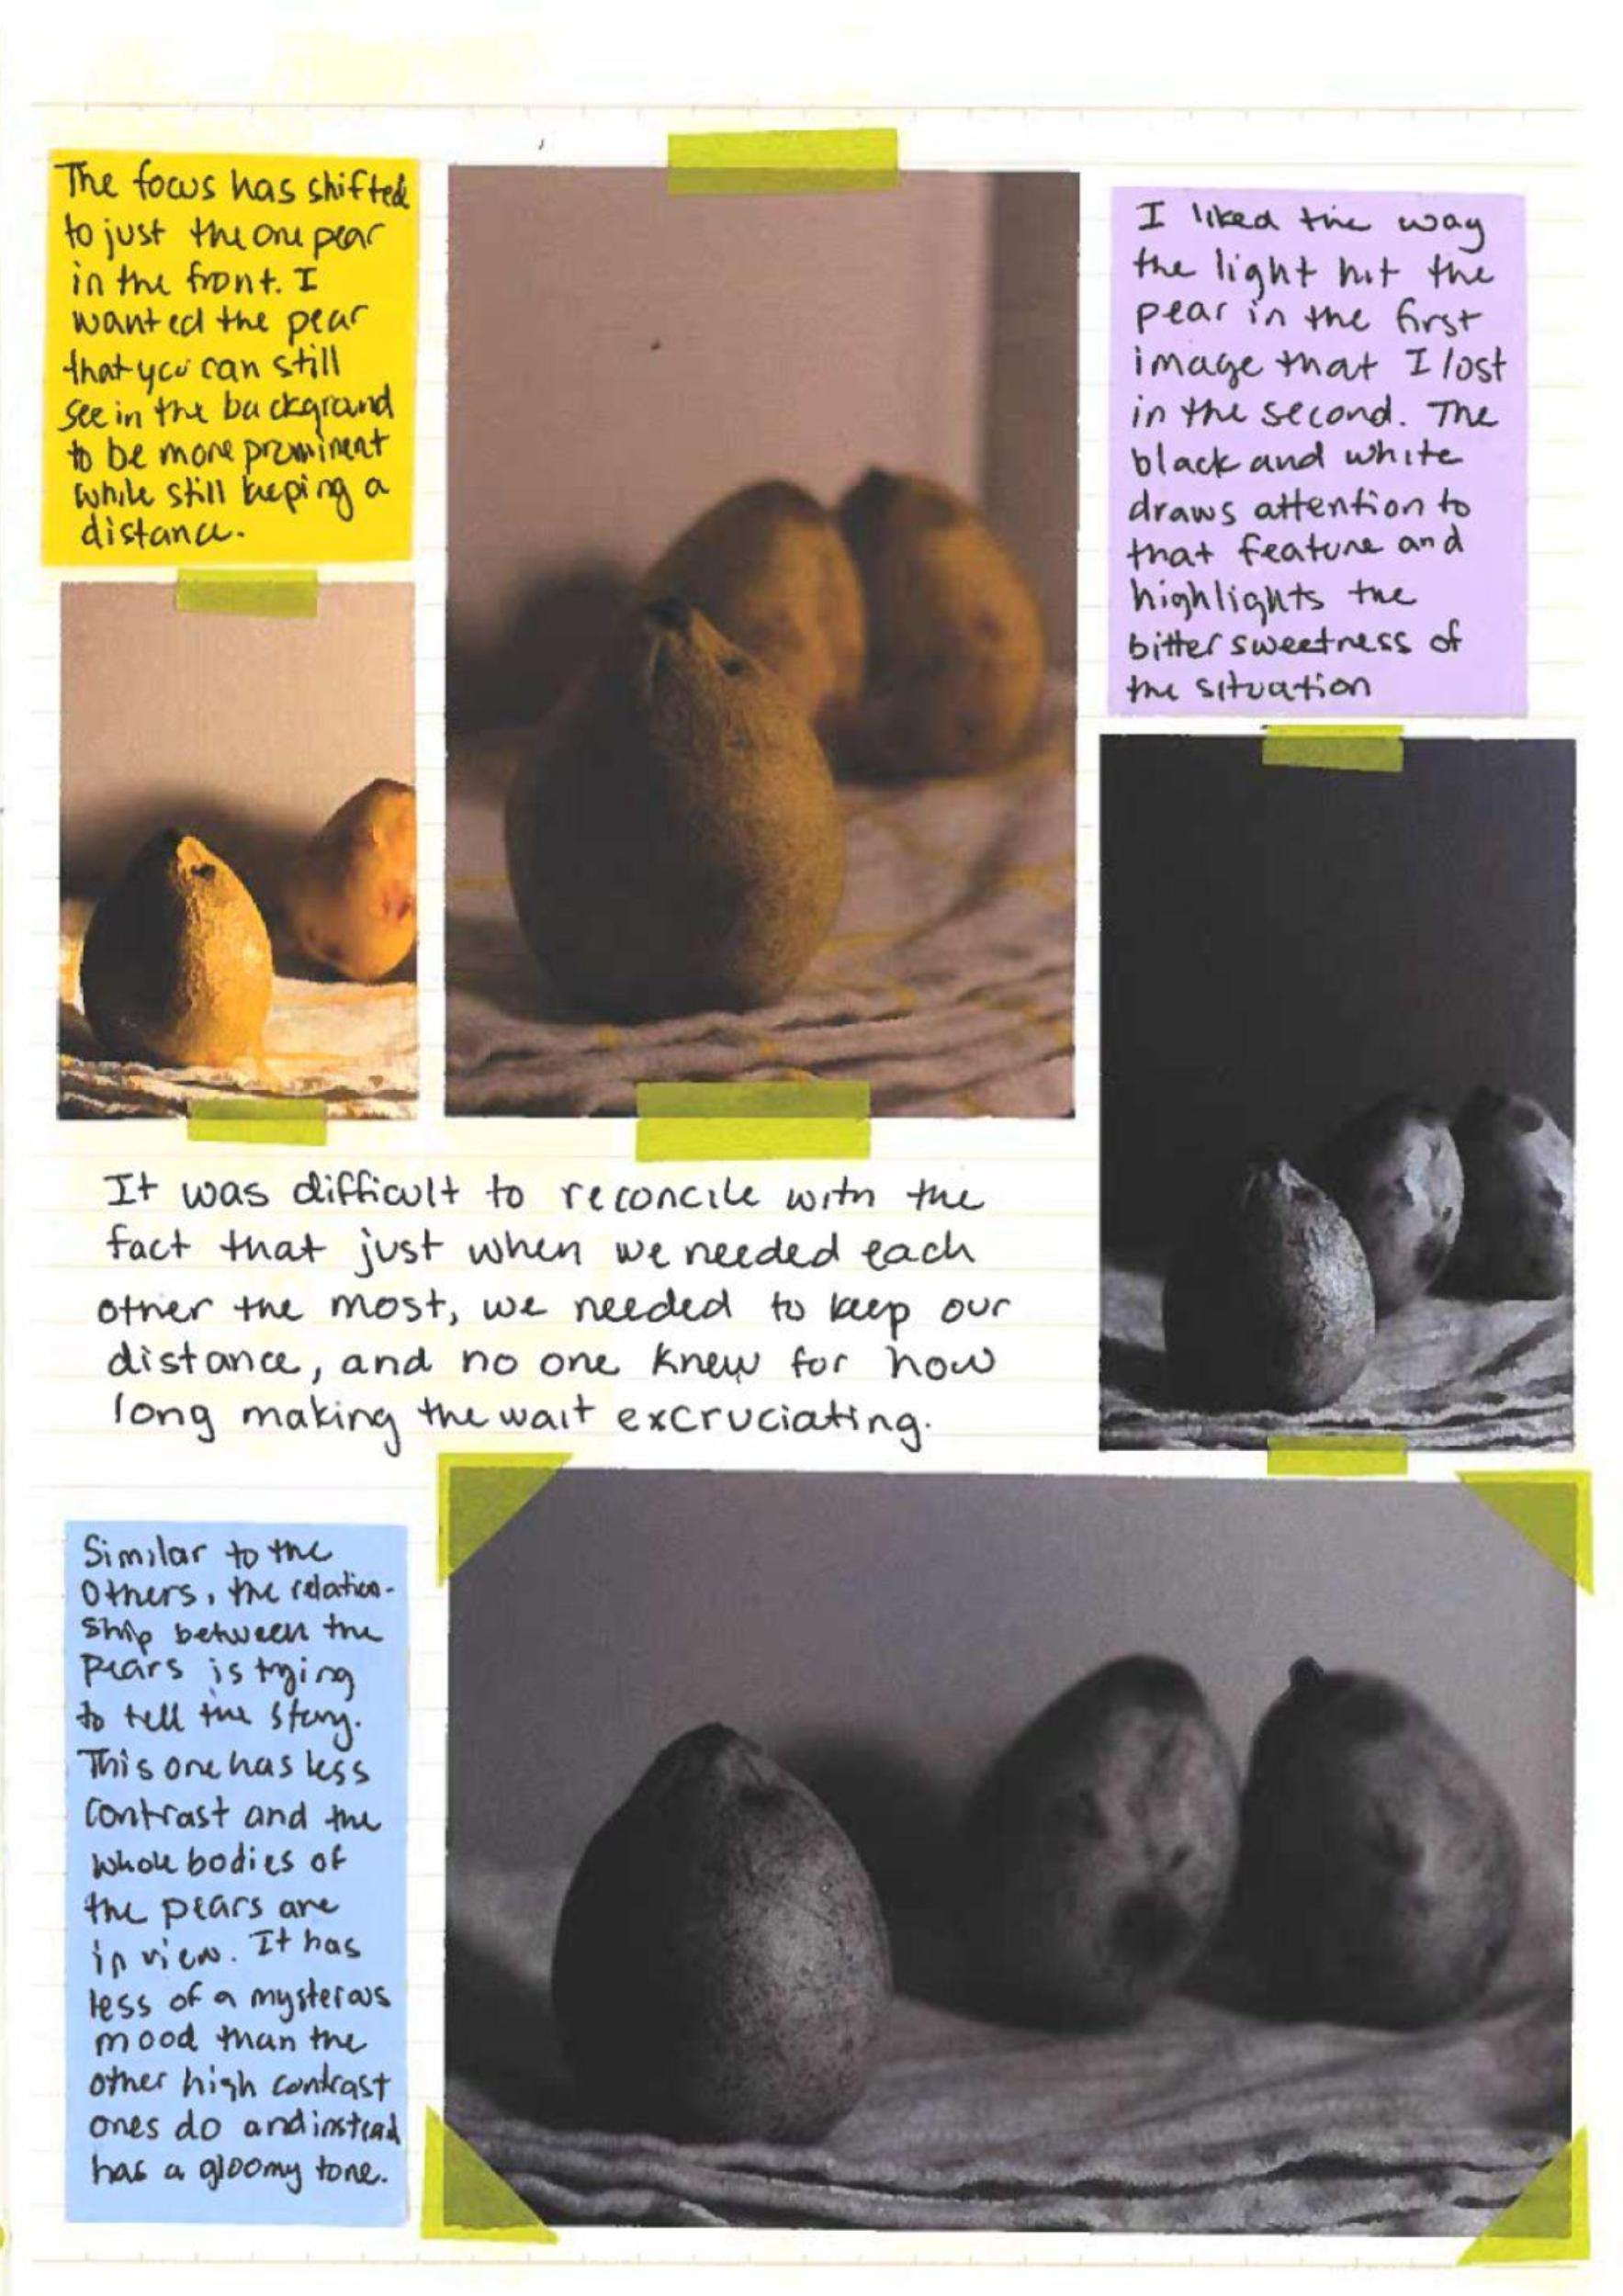 The focus has shifted
to just the one pear
in the front. I
wanted the pear
that you can still
see in the background
to be more prominent
while still keeping a
distance.
I liked the way
the light hit the
pear in the first
image that I lost
in the second. The
black and white
draws attention to
that feature and
highlights the
bittersweetness of
the situation
It was difficult to reconcile with the
fact that just when we needed each
other the most, we needed to keep our
distance, and no one knew for how
long making the wait excruciating.
Similar to the
others, the relation-
ship between the
pears is trying
to tell the story.
This one has less
contrast and the
whole bodies of
the pears are
in view. It has
less of a mysterous
mood than the
other high contrast
ones do and instead
has a gloomy tone.